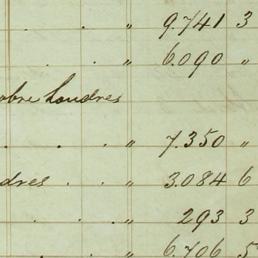 . „ 9.741 3
. . „ 6.090 „
obre Londres
. . . „ 7.350 „
dres . . „ 3.084 6
. . . „ 293 3
„ 6.706 5